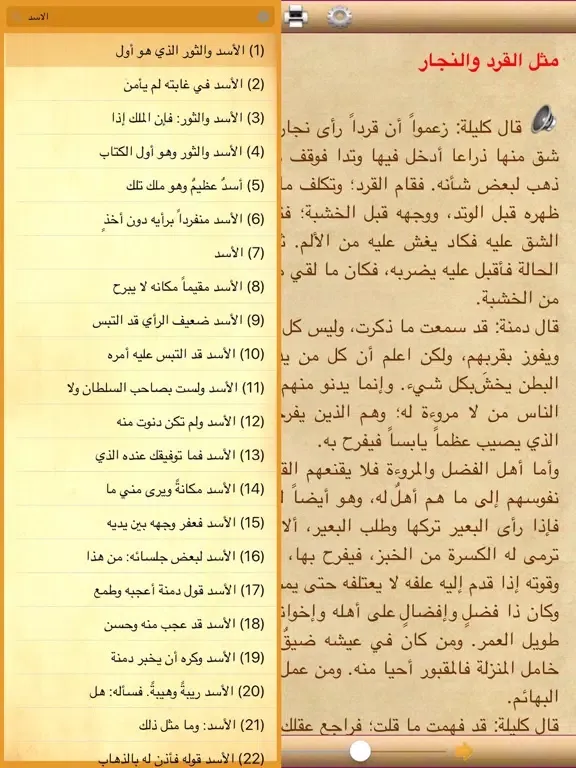 الاسد
(1) الأسد والثور الذي هو أول
(2) الأسد في غابته لم يأمن
(3) الأسد والثور: فإن الملك إذا
(4) الأسد والثور وهو أول الكتاب
(5) أسدٌ عظيمٌ وهو ملك تلك
(6) الأسد منفرداً برأيه دون أخذٍ
(7) الأسد
(8) الأسد مقيماً مكانه لا يبرح
(9) الأسد ضعيف الرأي قد التبس
(10) الأسد قد التبس عليه أمره
(11) الأسد ولست بصاحب السلطان ولا
(12) الأسد ولم تكن دنوت منه
(13) الأسد فما توفيقك عنده الذي
(14) الأسد مكانةً ويرى مني ما
(15) الأسد فعفر وجهه بين يديه
(16) الأسد لبعض جلسائه: من هذا
(17) الأسد قول دمنة أعجبه وطمع
(18) الأسد قد عجب منه وحسن
(19) الأسد وكره أن يخبر دمنة
(20) الأسد ريبةً وهيبةً. فسأله: هل
(21) الأسد: وما مثل ذلك
(22) الأسد قوله فأذن له بالذهاب
مثل القرد والنجار
قال كليلة: زعموا أن قرداً رأى نجار
شق منها ذراعا أدخل فيها وتدا فوقف
ذهب لبعض شأنه. فقام القرد؛ وتكلف ما
ظهره قبل الوتد، ووجهه قبل الخشبة؛
الشق عليه فكاد يغش عليه من الألم.
الحالة فأقبل عليه يضربه، فكان ما لقي
من الخشبة.
قال دمنة: قد سمعت ما ذكرت، وليس كل
ويفوز بقربهم، ولكن اعلم أن كل من
البطن يخشَ بكل شيء. وإنما يدنو منهم
الناس من لا مروءة له؛ وهم الذين
الذي يصيب عظماً يابساً فيفرح به.
وأما أهل الفضل والمروءة فلا يقنعهم
نفوسهم إلى ما هم أهلٌ له، وهو أيضاً
فإذا رأى البعير تركها وطلب البعير، ألا
ترمى له الكسرة من الخبز، فيفرح بها،
وقوته إذا قدم إليه علفه لا يعتلفه حتى
وكان ذا فضلٍ وإفضالٍ على أهله
طويل العمر. ومن كان في عيشه ضيقٌ
خامل المنزلة فالمقبور أحيا منه. ومن عمل
البهائم.
قال كليلة: قد فهمت ما قلت؛ فراجع عقلك